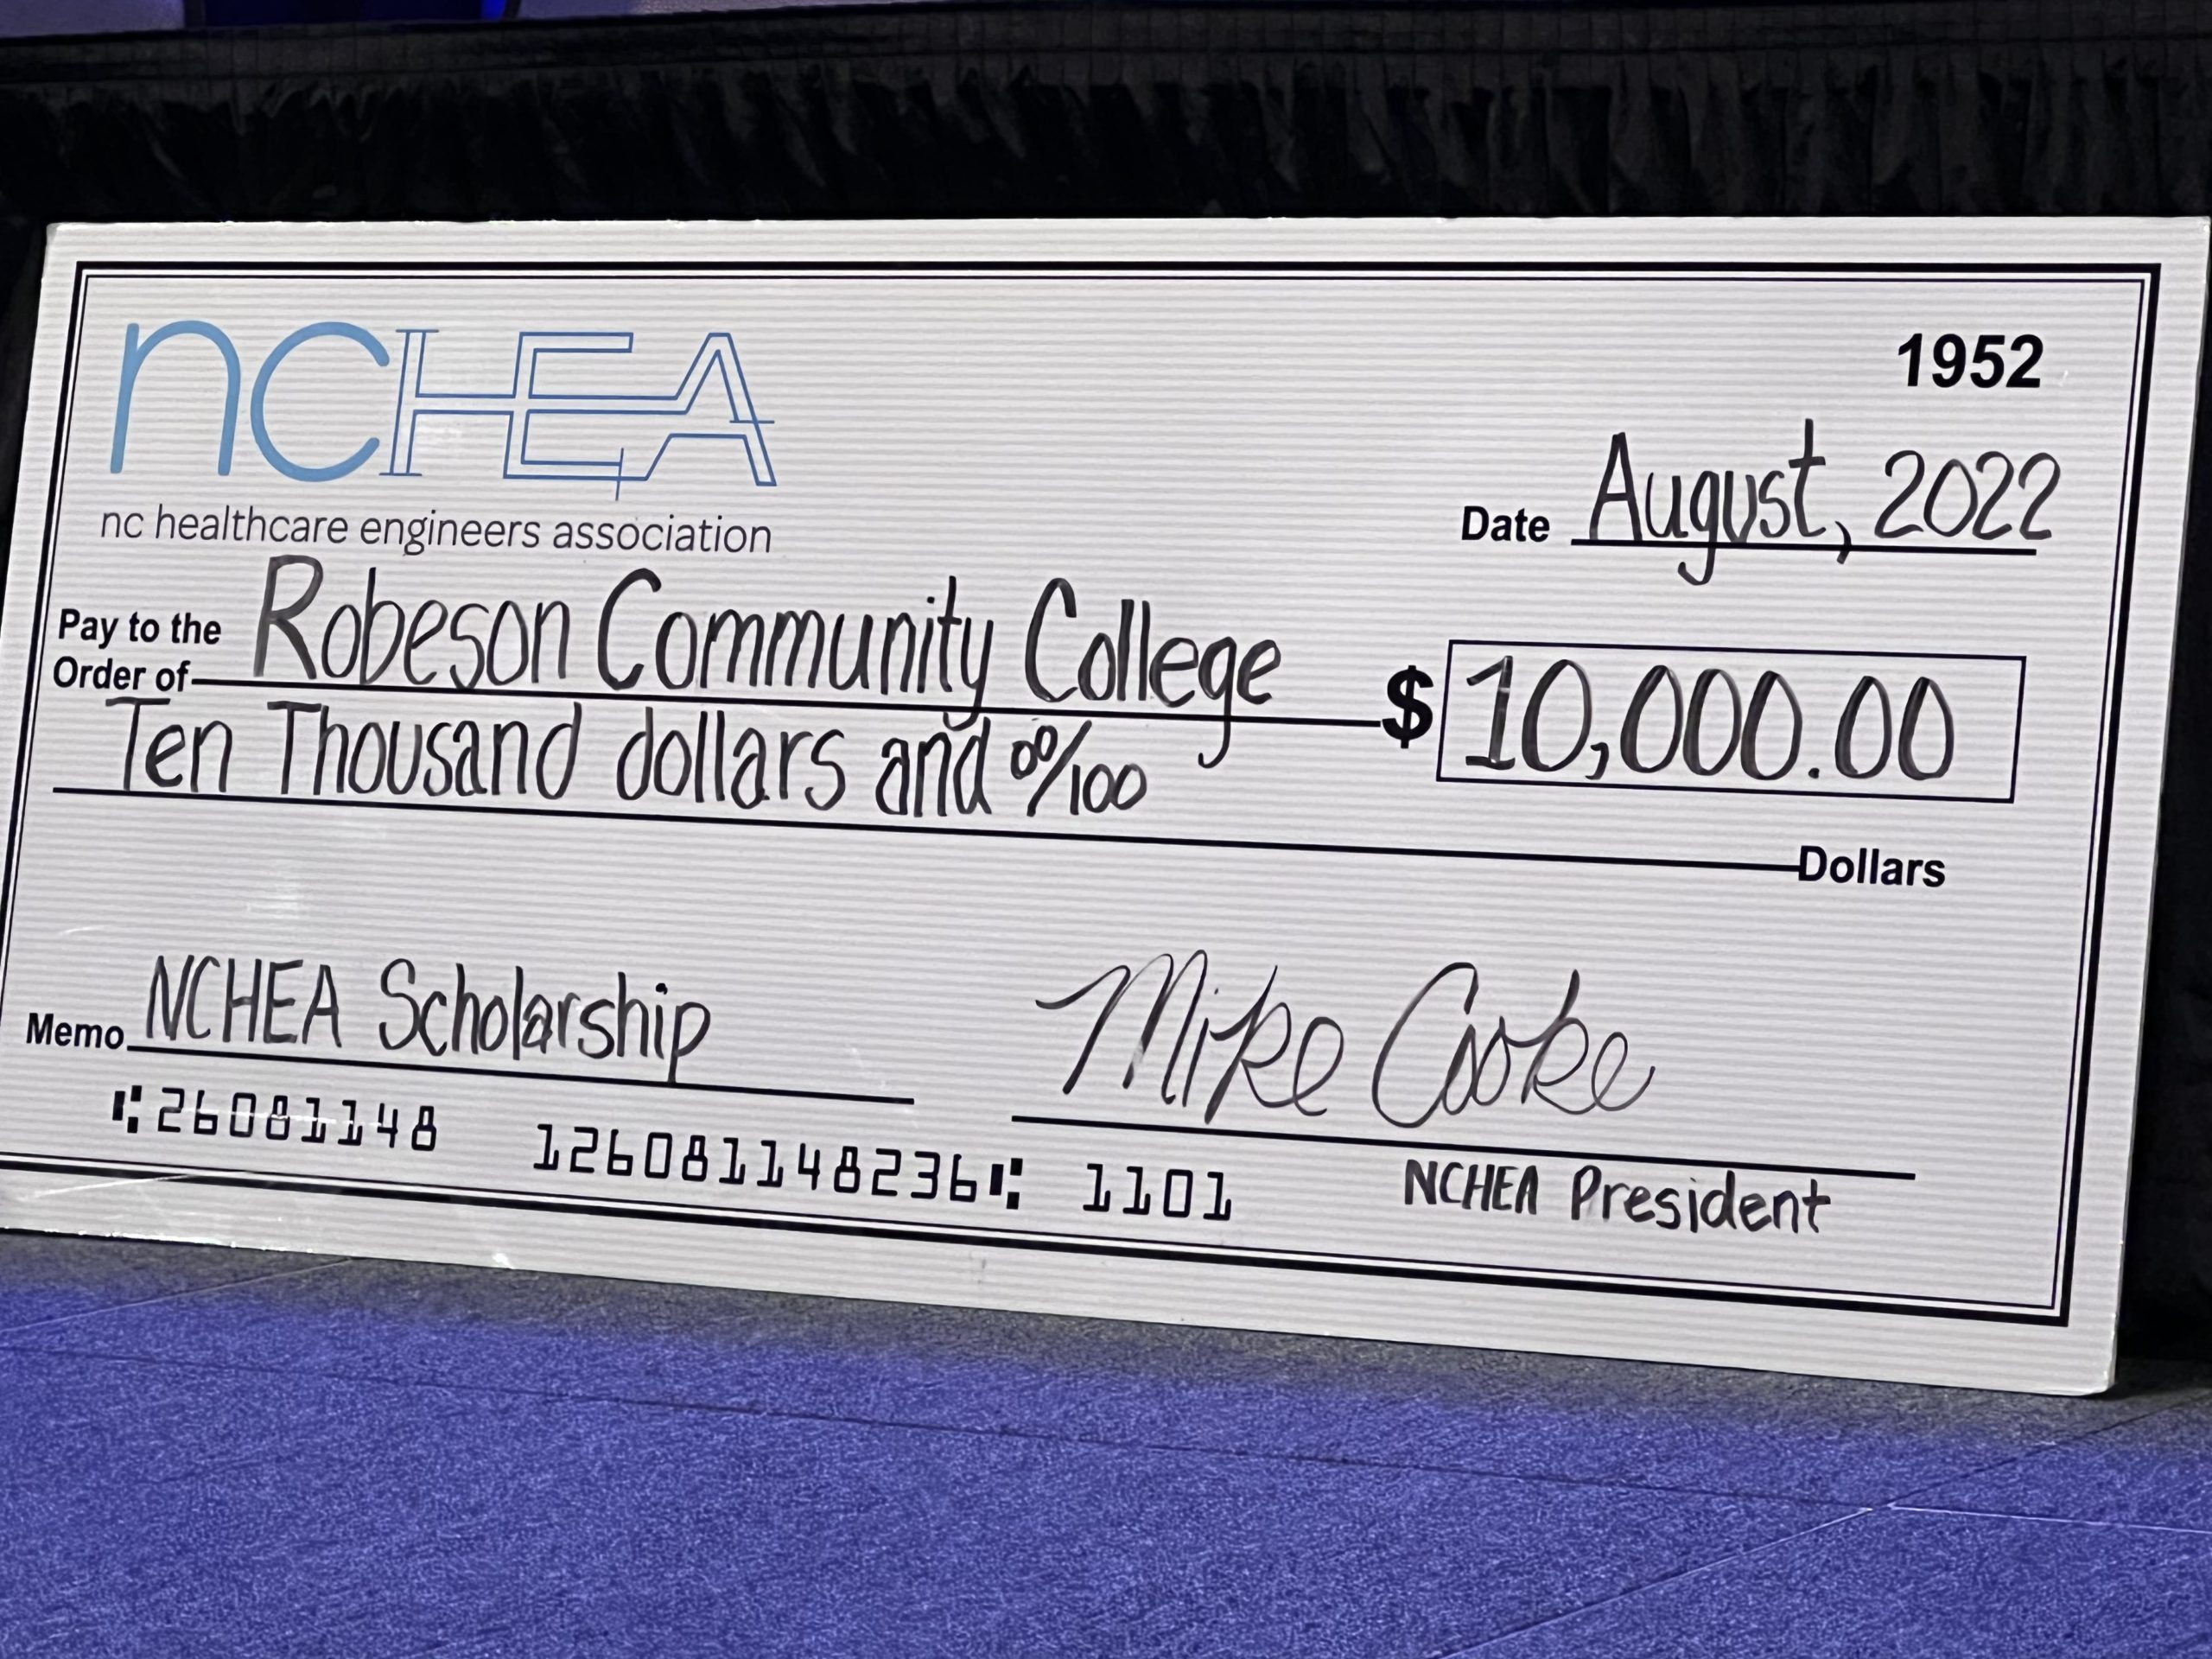 ncHEA
nc healthcare engineers association
1952
Date August, 2022
Pay to the
Order of Robeson Community College $ 10,000.00
Ten Thousand dollars and 00/100
Dollars
Memo NCHEA Scholarship
Mike Cooke
NCHEA President
⑆26081148 126081148236⑆ 1101